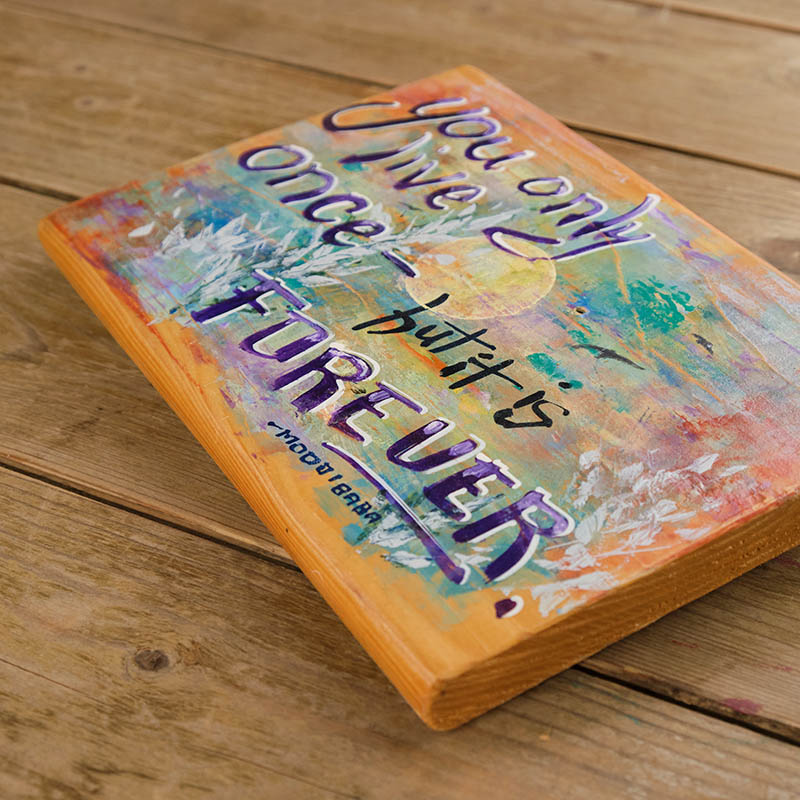 you only
live
once -
but it is
FOREVER.
~MOOJIBABA